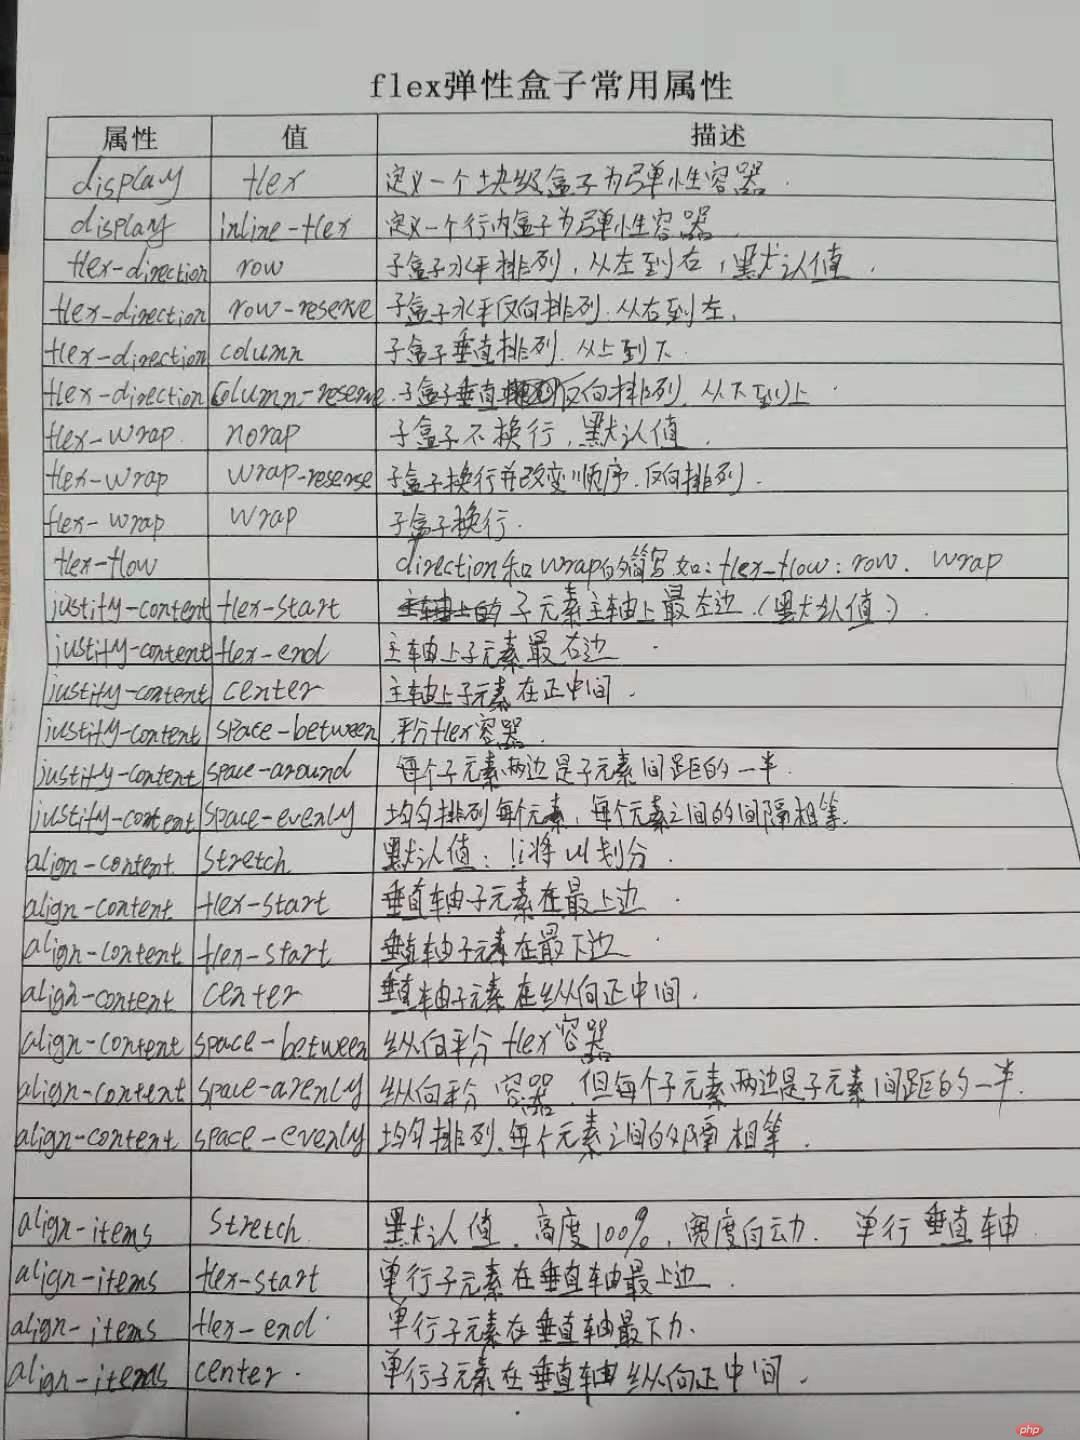 flex弹性盒子常用属性
属性 值 描述
display flex 定义一个块级盒子为弹性容器.
display inline-flex 定义一个行内盒子为弹性容器.
flex-direction row 子盒子水平排列,从左到右,默认值.
flex-direction row-reserve 子盒子水平反向排列.从右到左.
flex-direction column 子盒子垂直排列.从上到下.
flex-direction column-reserve 子盒子垂直反向排列.从下到上.
flex-wrap norap 子盒子不换行,默认值.
flex-wrap wrap-reserse 子盒子换行并改变顺序.反向排列.
flex-wrap wrap 子盒子换行.
flex-flow direction和wrap的简写 如:flex-flow:row. wrap
justify-content flex-start 主轴上的 子元素主轴上最左边.(默认值.).
justify-content flex-end 主轴上子元素最右边.
justify-content center 主轴上子元素在正中间.
justify-content space-between 平分flex容器.
justify-content space-around 每个子元素两边是子元素间距的一半.
justify-content space-evenly 均匀排列每个元素,每个元素之间的间隔相等.
align-content stretch 默认值: 划分.
align-content flex-start 垂直轴子元素在最上边.
align-content flex-start 垂直轴子元素在最下边.
align-content center 垂直轴子元素在纵向正中间.
align-content space-between 纵向平分flex容器
align-content space-arenly 纵向平分容器.但每个子元素两边是子元素间距的一半.
align-content space-evenly 均匀排列.每个元素之间的隔相等.
align-items stretch 默认值.高度100%,宽度自动. 单行垂直轴.
align-items flex-start 单行子元素在垂直轴最上边.
align-items flex-end 单行子元素在垂直轴最下方.
align-items center. 单行子元素在垂直轴纵向正中间.
php